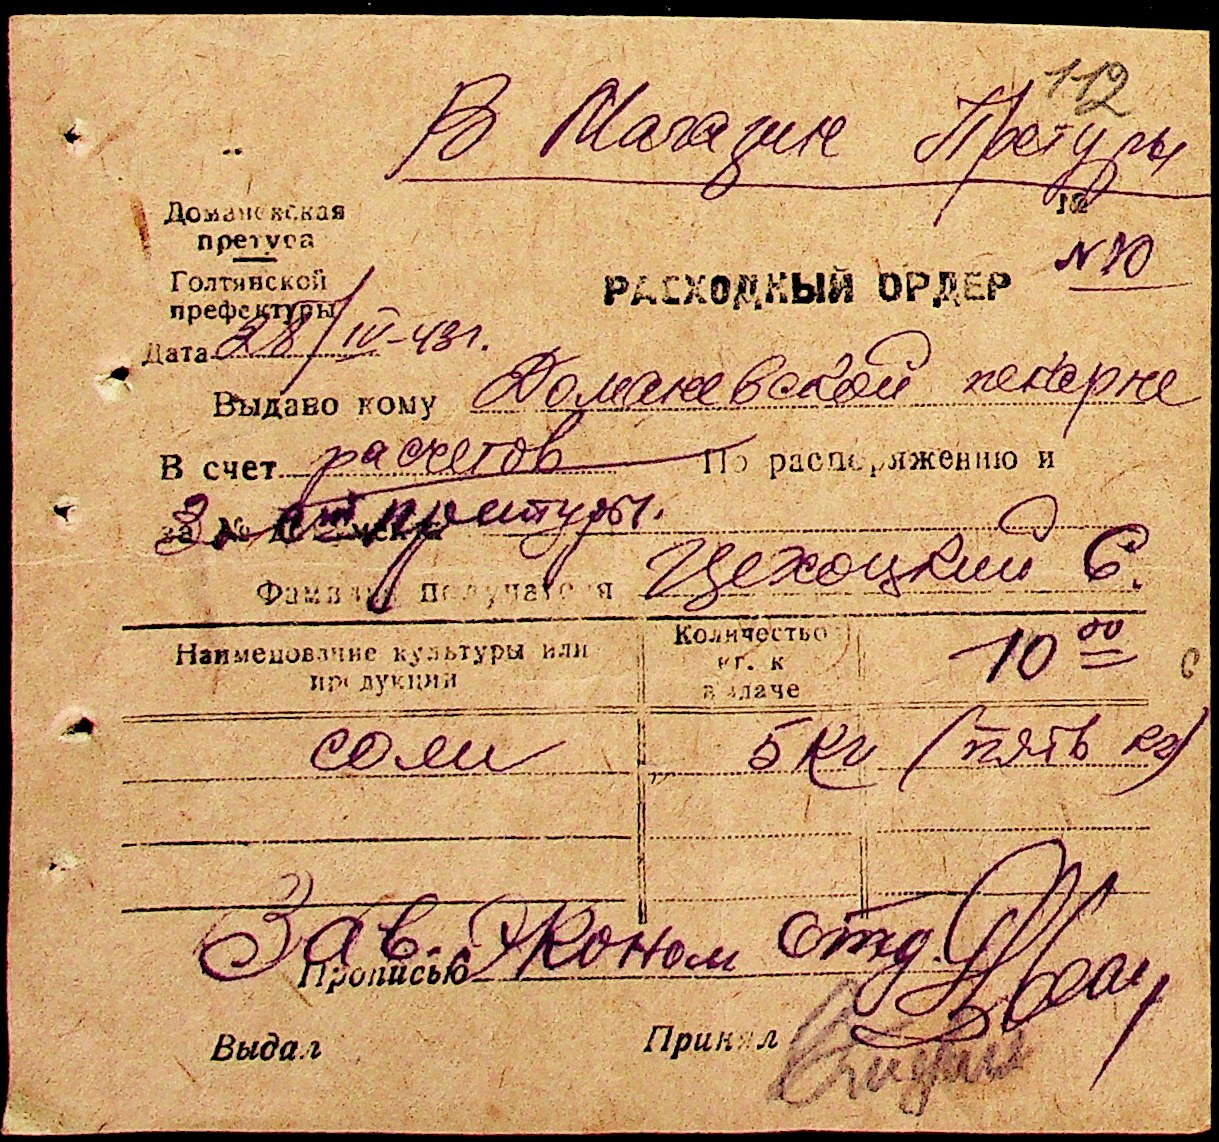 112
В Магазин Претуры
№
Домановская
претура
№ 10
Голтянской
префектуры
РАСХОДНЫЙ ОРДЕР
Дата 28/IV-43г.
Выдано кому Доманевской пекарне
В счет расчетов По распоряжению и
за № претуры.
Фамилия получателя Цехоцкий С.
Наименование культуры или
продукции
Количество
кг. к
выдаче
10 00
соли 5 кг (пять кг)
Зав. Эконом отд.
Прописью
Выдал Принял